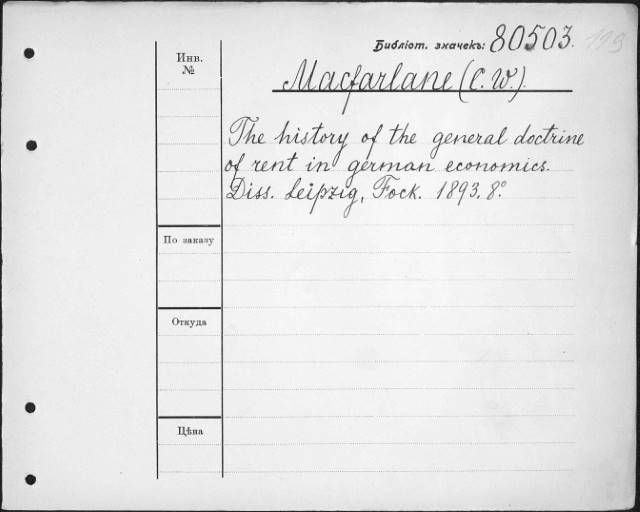 Библіот. значекъ: 80503. 119
Инв.
№
Macfarlane (C. W.).
The history of the general doctrine
of rent in german economics.
Diss. Leipzig, Fock. 1893. 8°.
По заказу
Откуда
Цѣна